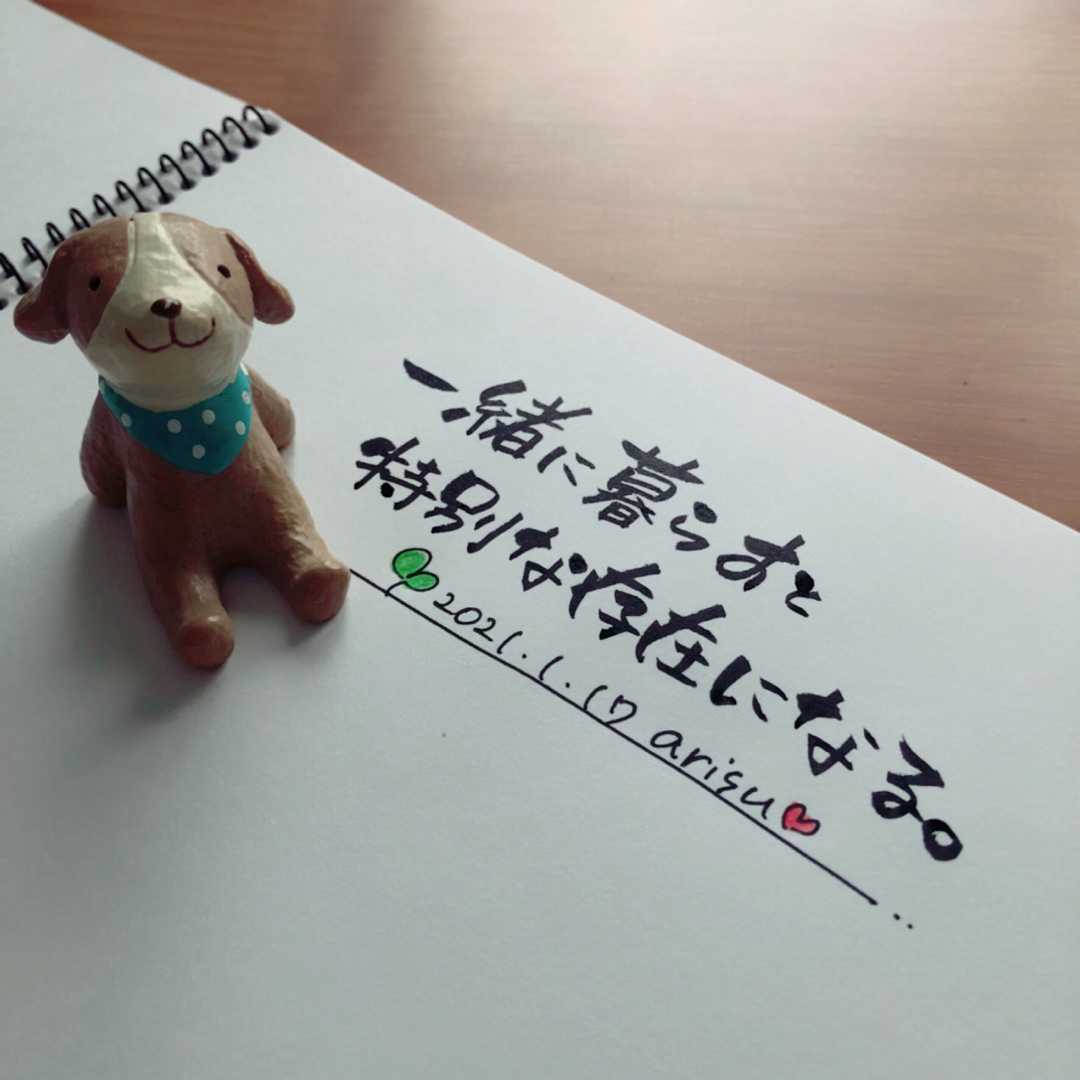 一緒に暮らすと
特別な存在になる。
2021.1.17 arisu